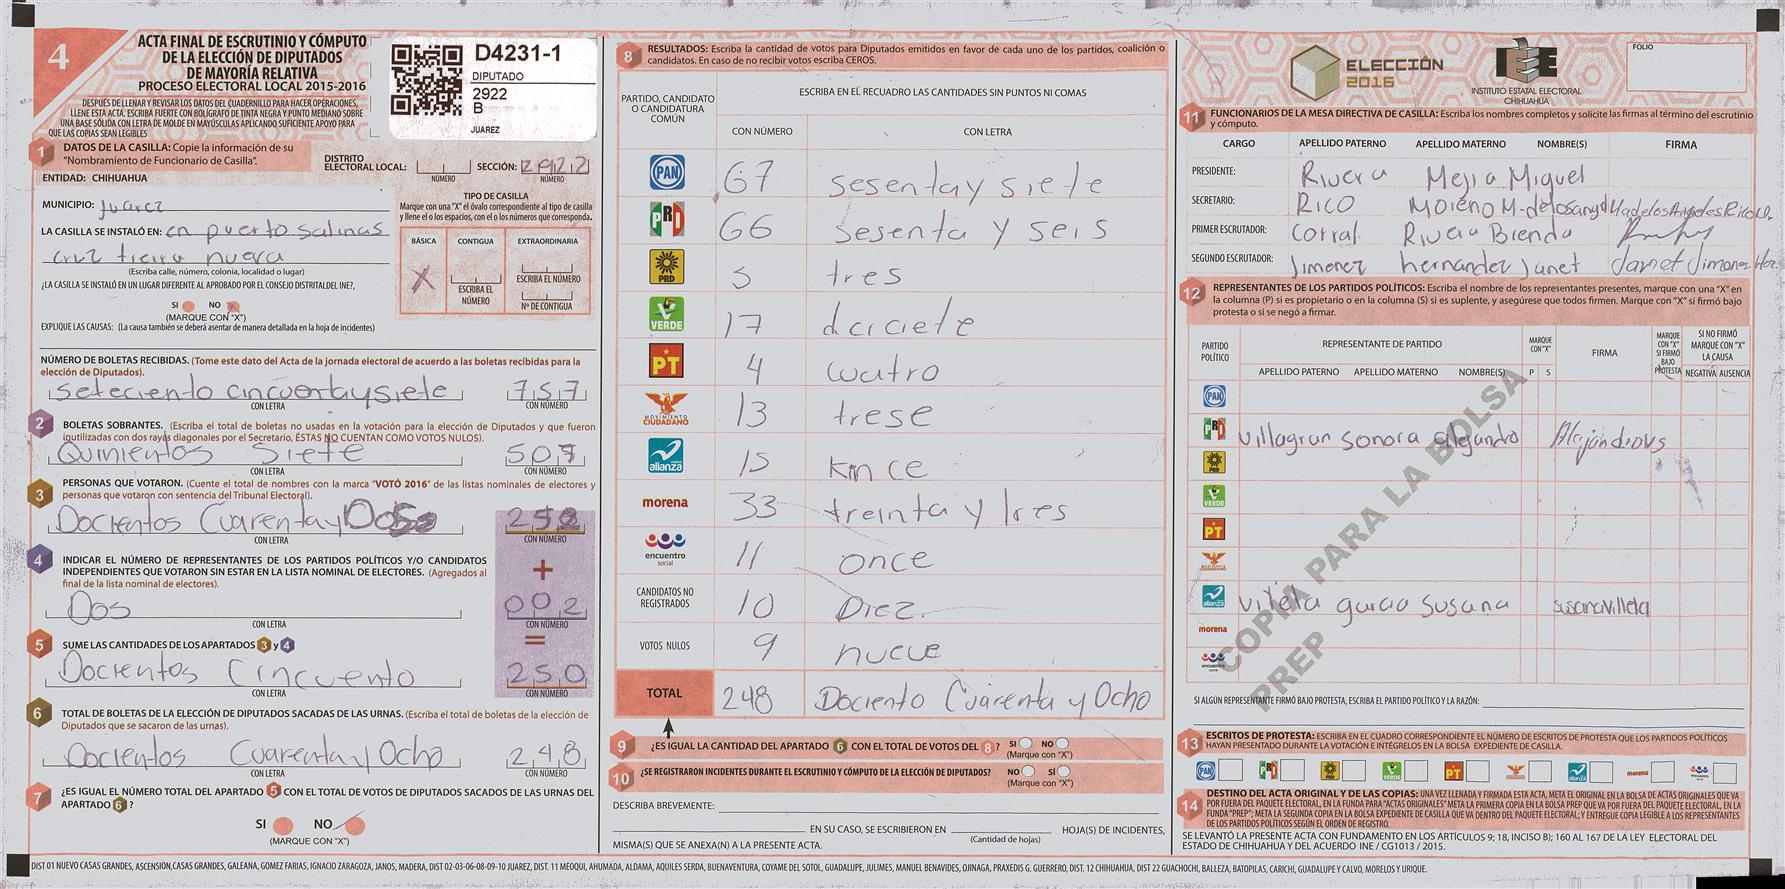 4
ACTA FINAL DE ESCRUTINIO Y CÓMPUTO
DE LA ELECCIÓN DE DIPUTADOS
DE MAYORÍA RELATIVA
PROCESO ELECTORAL LOCAL 2015-2016
DESPUÉS DE LLENAR Y REVISAR LOS DATOS DEL CUADERNILLO PARA HACER OPERACIONES,
LLENE ESTA ACTA. ESCRIBA FUERTE CON BOLÍGRAFO DE TINTA NEGRA Y PUNTO MEDIANO SOBRE
UNA BASE SÓLIDA CON LETRA DE MOLDE EN MAYÚSCULAS APLICANDO SUFICIENTE APOYO PARA
QUE LAS COPIAS SEAN LEGIBLES
D4231-1
DIPUTADO
2922
B
JUAREZ
1 DATOS DE LA CASILLA: Copie la información de su
"Nombramiento de Funcionario de Casilla".
DISTRITO
ELECTORAL LOCAL:
NÚMERO
SECCIÓN: 2922
NÚMERO
ENTIDAD: CHIHUAHUA
MUNICIPIO: Juarez
LA CASILLA SE INSTALÓ EN: en puerto salinas
cruz tierra nueva
(Escriba calle, número, colonia, localidad o lugar)
¿LA CASILLA SE INSTALÓ EN UN LUGAR DIFERENTE AL APROBADO POR EL CONSEJO DISTRITAL DEL INE?,
SI NO
(MARQUE CON "X")
EXPLIQUE LAS CAUSAS: (La causa también se deberá asentar de manera detallada en la hoja de incidentes)
TIPO DE CASILLA
Marque con una "X" el óvalo correspondiente al tipo de casilla
y llene el o los espacios, con el o los números que corresponda.
BÁSICA CONTIGUA EXTRAORDINARIA
X
ESCRIBA EL NÚMERO
ESCRIBA EL NÚMERO
Nº DE CONTIGUA
NÚMERO DE BOLETAS RECIBIDAS. (Tome este dato del Acta de la jornada electoral de acuerdo a las boletas recibidas para la
elección de Diputados).
seteciento cincuentaysiete 757
CON LETRA CON NÚMERO
2 BOLETAS SOBRANTES. (Escriba el total de boletas no usadas en la votación para la elección de Diputados y que fueron
inutilizadas con dos rayas diagonales por el Secretario, ÉSTAS NO CUENTAN COMO VOTOS NULOS).
Quinientos Siete 507
CON LETRA CON NÚMERO
3 PERSONAS QUE VOTARON. (Cuente el total de nombres con la marca "VOTÓ 2016" de las listas nominales de electores y
personas que votaron con sentencia del Tribunal Electoral).
Docientos Cuarenta y
CON LETRA CON NÚMERO
+
4 INDICAR EL NÚMERO DE REPRESENTANTES DE LOS PARTIDOS POLÍTICOS Y/O CANDIDATOS
INDEPENDIENTES QUE VOTARON SIN ESTAR EN LA LISTA NOMINAL DE ELECTORES. (Agregados al
final de la lista nominal de electores).
Dos 002
CON LETRA CON NÚMERO
=
5 SUME LAS CANTIDADES DE LOS APARTADOS 3 y 4
Docientos Cincuento 250
CON LETRA CON NÚMERO
6 TOTAL DE BOLETAS DE LA ELECCIÓN DE DIPUTADOS SACADAS DE LAS URNAS. (Escriba el total de boletas de la elección de
Diputados que se sacaron de las urnas).
Docientos Cuarenta y Ocho 248
CON LETRA CON NÚMERO
7 ¿ES IGUAL EL NÚMERO TOTAL DEL APARTADO 5 CON EL TOTAL DE VOTOS DE DIPUTADOS SACADOS DE LAS URNAS DEL
APARTADO 6 ?
SI NO
(MARQUE CON "X")
8 RESULTADOS: Escriba la cantidad de votos para Diputados emitidos en favor de cada uno de los partidos, coalición o
candidatos. En caso de no recibir votos escriba CEROS.
PARTIDO, CANDIDATO
O CANDIDATURA
COMÚN
ESCRIBA EN EL RECUADRO LAS CANTIDADES SIN PUNTOS NI COMAS
CON NÚMERO CON LETRA
PAN 67 sesenta y siete
PRI 66 sesenta y seis
PRD 3 tres
VERDE 17 diciciete
PT 4 cuatro
MOVIMIENTO CIUDADANO 13 trese
alianza 15 kince
morena 33 treinta y tres
encuentro social 11 once
CANDIDATOS NO REGISTRADOS 10 Diez
VOTOS NULOS 9 nueve
TOTAL 248 Dociento Cuarenta y Ocho
9 ¿ES IGUAL LA CANTIDAD DEL APARTADO 6 CON EL TOTAL DE VOTOS DEL 8 ? SI NO
(Marque con "X")
10 ¿SE REGISTRARON INCIDENTES DURANTE EL ESCRUTINIO Y CÓMPUTO DE LA ELECCIÓN DE DIPUTADOS? NO SÍ
(Marque con "X")
DESCRIBA BREVEMENTE:
EN SU CASO, SE ESCRIBIERON EN HOJA(S) DE INCIDENTES,
(Cantidad de hojas)
MISMA(S) QUE SE ANEXA(N) A LA PRESENTE ACTA.
ELECCIÓN
2016
IEE
INSTITUTO ESTATAL ELECTORAL
CHIHUAHUA
FOLIO
11 FUNCIONARIOS DE LA MESA DIRECTIVA DE CASILLA: Escriba los nombres completos y solicite las firmas al término del escrutinio
y cómputo.
CARGO APELLIDO PATERNO APELLIDO MATERNO NOMBRE(S) FIRMA
PRESIDENTE: Rivera Mejia Miguel
SECRETARIO: RICO Moreno M. delosang
PRIMER ESCRUTADOR: Corral Rivera Brenda
SEGUNDO ESCRUTADOR: Jimenez hernandez Janet Janet Jimenez Hdz.
12 REPRESENTANTES DE LOS PARTIDOS POLÍTICOS: Escriba el nombre de los representantes presentes, marque con una "X" en
la columna (P) si es propietario o en la columna (S) si es suplente, y asegúrese que todos firmen. Marque con "X" si firmó bajo
protesta o si se negó a firmar.
PARTIDO
POLÍTICO
REPRESENTANTE DE PARTIDO
APELLIDO PATERNO APELLIDO MATERNO NOMBRE(S)
MARQUE CON "X"
P S
FIRMA
MARQUE CON "X" SI FIRMÓ BAJO PROTESTA
SI NO FIRMÓ MARQUE CON "X" LA CAUSA
NEGATIVA AUSENCIA
PAN
PRI villagran sonora alejandro
PRD
VERDE
PT
alianza vileta garcia susana susanavilleta
morena
COPIA PARA LA BOLSA
PREP
SI ALGÚN REPRESENTANTE FIRMÓ BAJO PROTESTA, ESCRIBA EL PARTIDO POLÍTICO Y LA RAZÓN:
13 ESCRITOS DE PROTESTA: ESCRIBA EN EL CUADRO CORRESPONDIENTE EL NÚMERO DE ESCRITOS DE PROTESTA QUE LOS PARTIDOS POLÍTICOS
HAYAN PRESENTADO DURANTE LA VOTACIÓN E INTÉGRELOS EN LA BOLSA EXPEDIENTE DE CASILLA.
PAN PRI PRD VERDE PT alianza morena
14 DESTINO DEL ACTA ORIGINAL Y DE LAS COPIAS: UNA VEZ LLENADA Y FIRMADA ESTA ACTA, META EL ORIGINAL EN LA BOLSA DE ACTAS ORIGINALES QUE VA
POR FUERA DEL PAQUETE ELECTORAL, EN LA FUNDA PARA "ACTAS ORIGINALES" META LA PRIMERA COPIA EN LA BOLSA PREP QUE VA POR FUERA DEL PAQUETE ELECTORAL, EN LA
FUNDA "PREP"; META LA SEGUNDA COPIA EN LA BOLSA EXPEDIENTE DE CASILLA QUE VA DENTRO DEL PAQUETE ELECTORAL; Y ENTREGUE COPIA LEGIBLE A LOS REPRESENTANTES
DE LOS PARTIDOS POLÍTICOS SEGÚN EL ORDEN DE REGISTRO.
SE LEVANTÓ LA PRESENTE ACTA CON FUNDAMENTO EN LOS ARTÍCULOS 9; 18, INCISO B); 160 AL 167 DE LA LEY ELECTORAL DEL
ESTADO DE CHIHUAHUA Y DEL ACUERDO INE / CG1013 / 2015.
DIST 01 NUEVO CASAS GRANDES, ASCENSION,CASAS GRANDES, GALEANA, GOMEZ FARIAS, IGNACIO ZARAGOZA, JANOS, MADERA, DIST 02-03-06-08-09-10 JUAREZ, DIST. 11 MEOQUI, AHUMADA, ALDAMA, AQUILES SERDA, BUENAVENTURA, COYAME DEL SOTOL, GUADALUPE, JULIMES, MANUEL BENAVIDES, OJINAGA, PRAXEDIS G. GUERRERO, DIST. 12 CHIHUAHUA, DIST 22 GUACHOCHI, BALLEZA, BATOPILAS, CARICHI, GUADALUPE Y CALVO, MORELOS Y URIQUE.